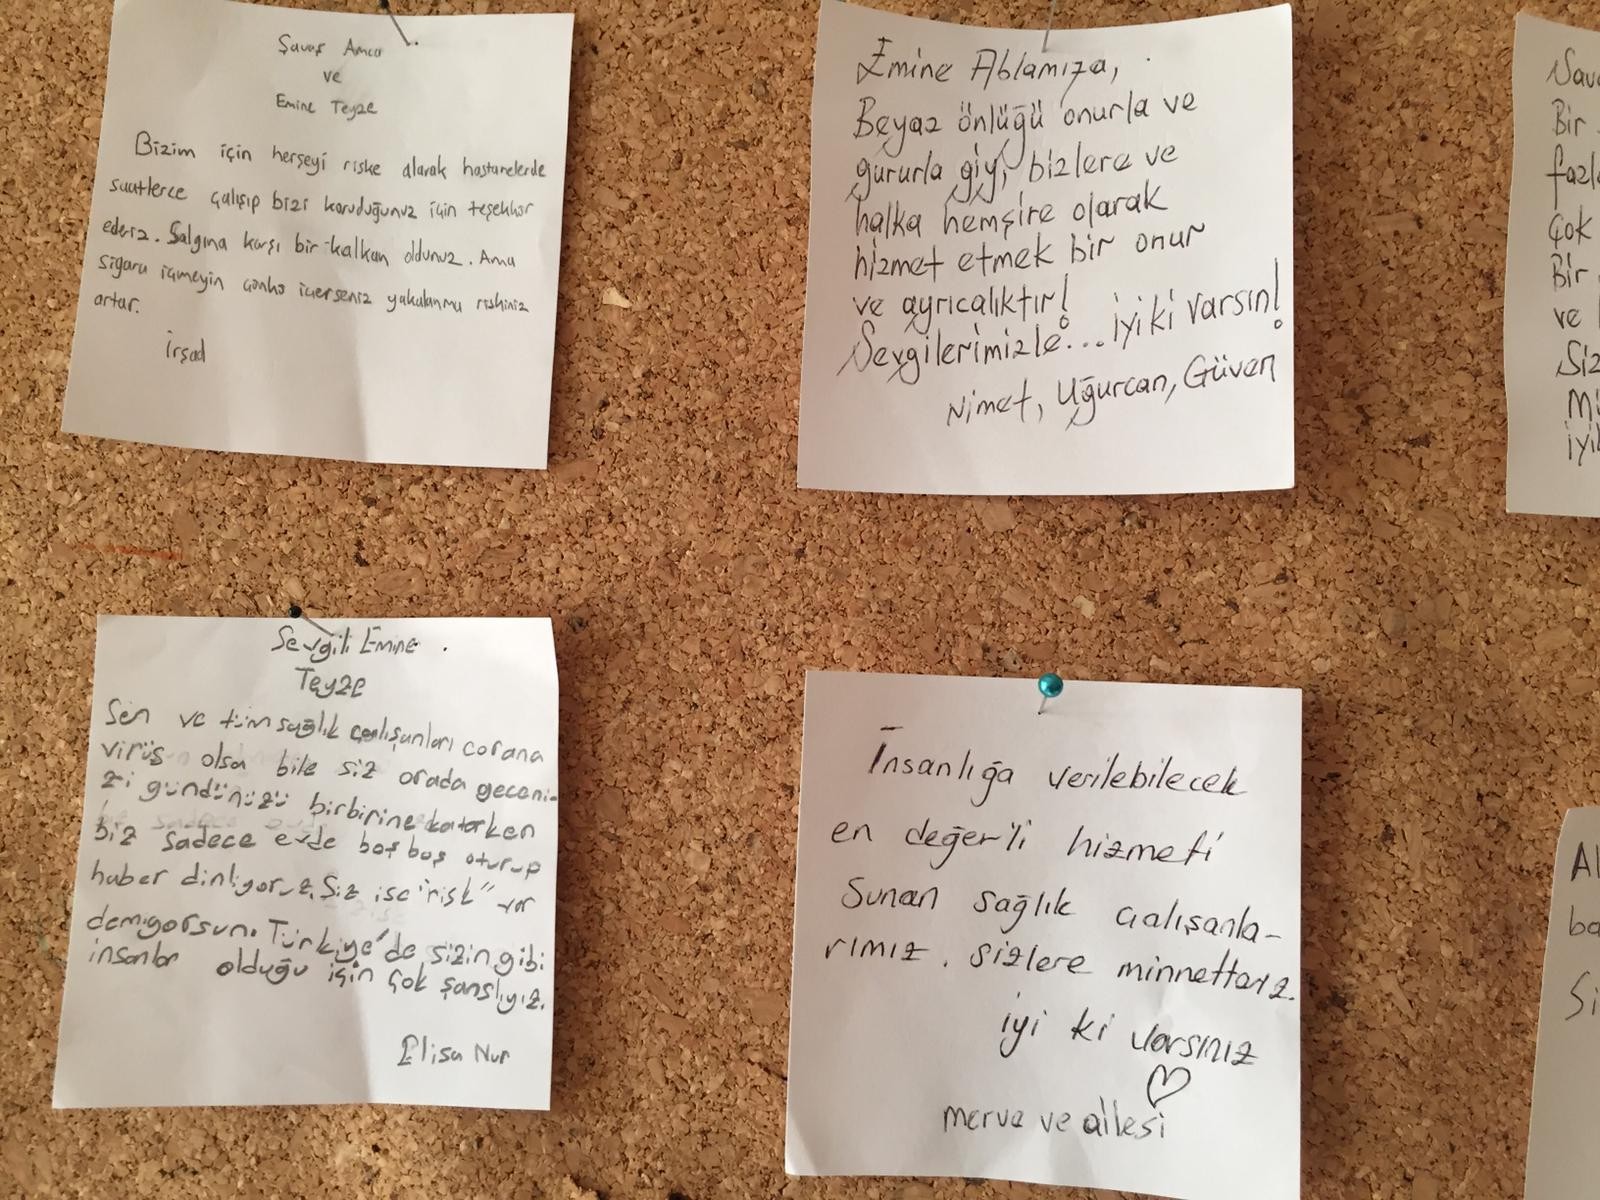 Şavaş Amca
ve
Emine Teyze
Bizim için herşeyi riske alarak hastanelerde
saatlerce çalışıp bizi koruduğunuz için teşekkür
ederiz. Salgına karşı bir kalkan oldunuz. Ama
sigara içmeyin çünkü içerseniz yakalanma riskiniz
artar.
İrşad
Emine Ablamıza,
Beyaz önlüğü onurla ve
gururla giy, bizlere ve
halka hemşire olarak
hizmet etmek bir onur
ve ayrıcalıktır!
Sevgilerimizle... iyi ki varsın!
Nimet, Uğurcan, Güven
Sevgili Emine
Teyze
Sen ve tüm sağlık çalışanları corana
virüs olsa bile siz orada geceni-
zi gündünüzü birbirine katarken
biz sadece evde boş boş oturup
haber dinliyoruz. Siz ise "risk" var
demiyorsun. Türkiye'de sizin gibi
insanlar olduğu için çok şanslıyız.
Elisa Nur
İnsanlığa verilebilecek
en değerli hizmeti
Sunan sağlık çalışanla-
rımız. sizlere minnettarız.
iyi ki varsınız
merve ve ailesi
Bir
çok
Bir
ve